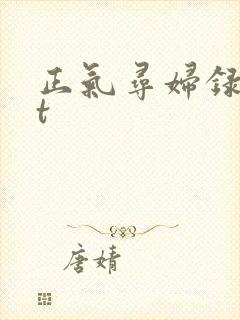 正氣尋婦録
t
唐婧